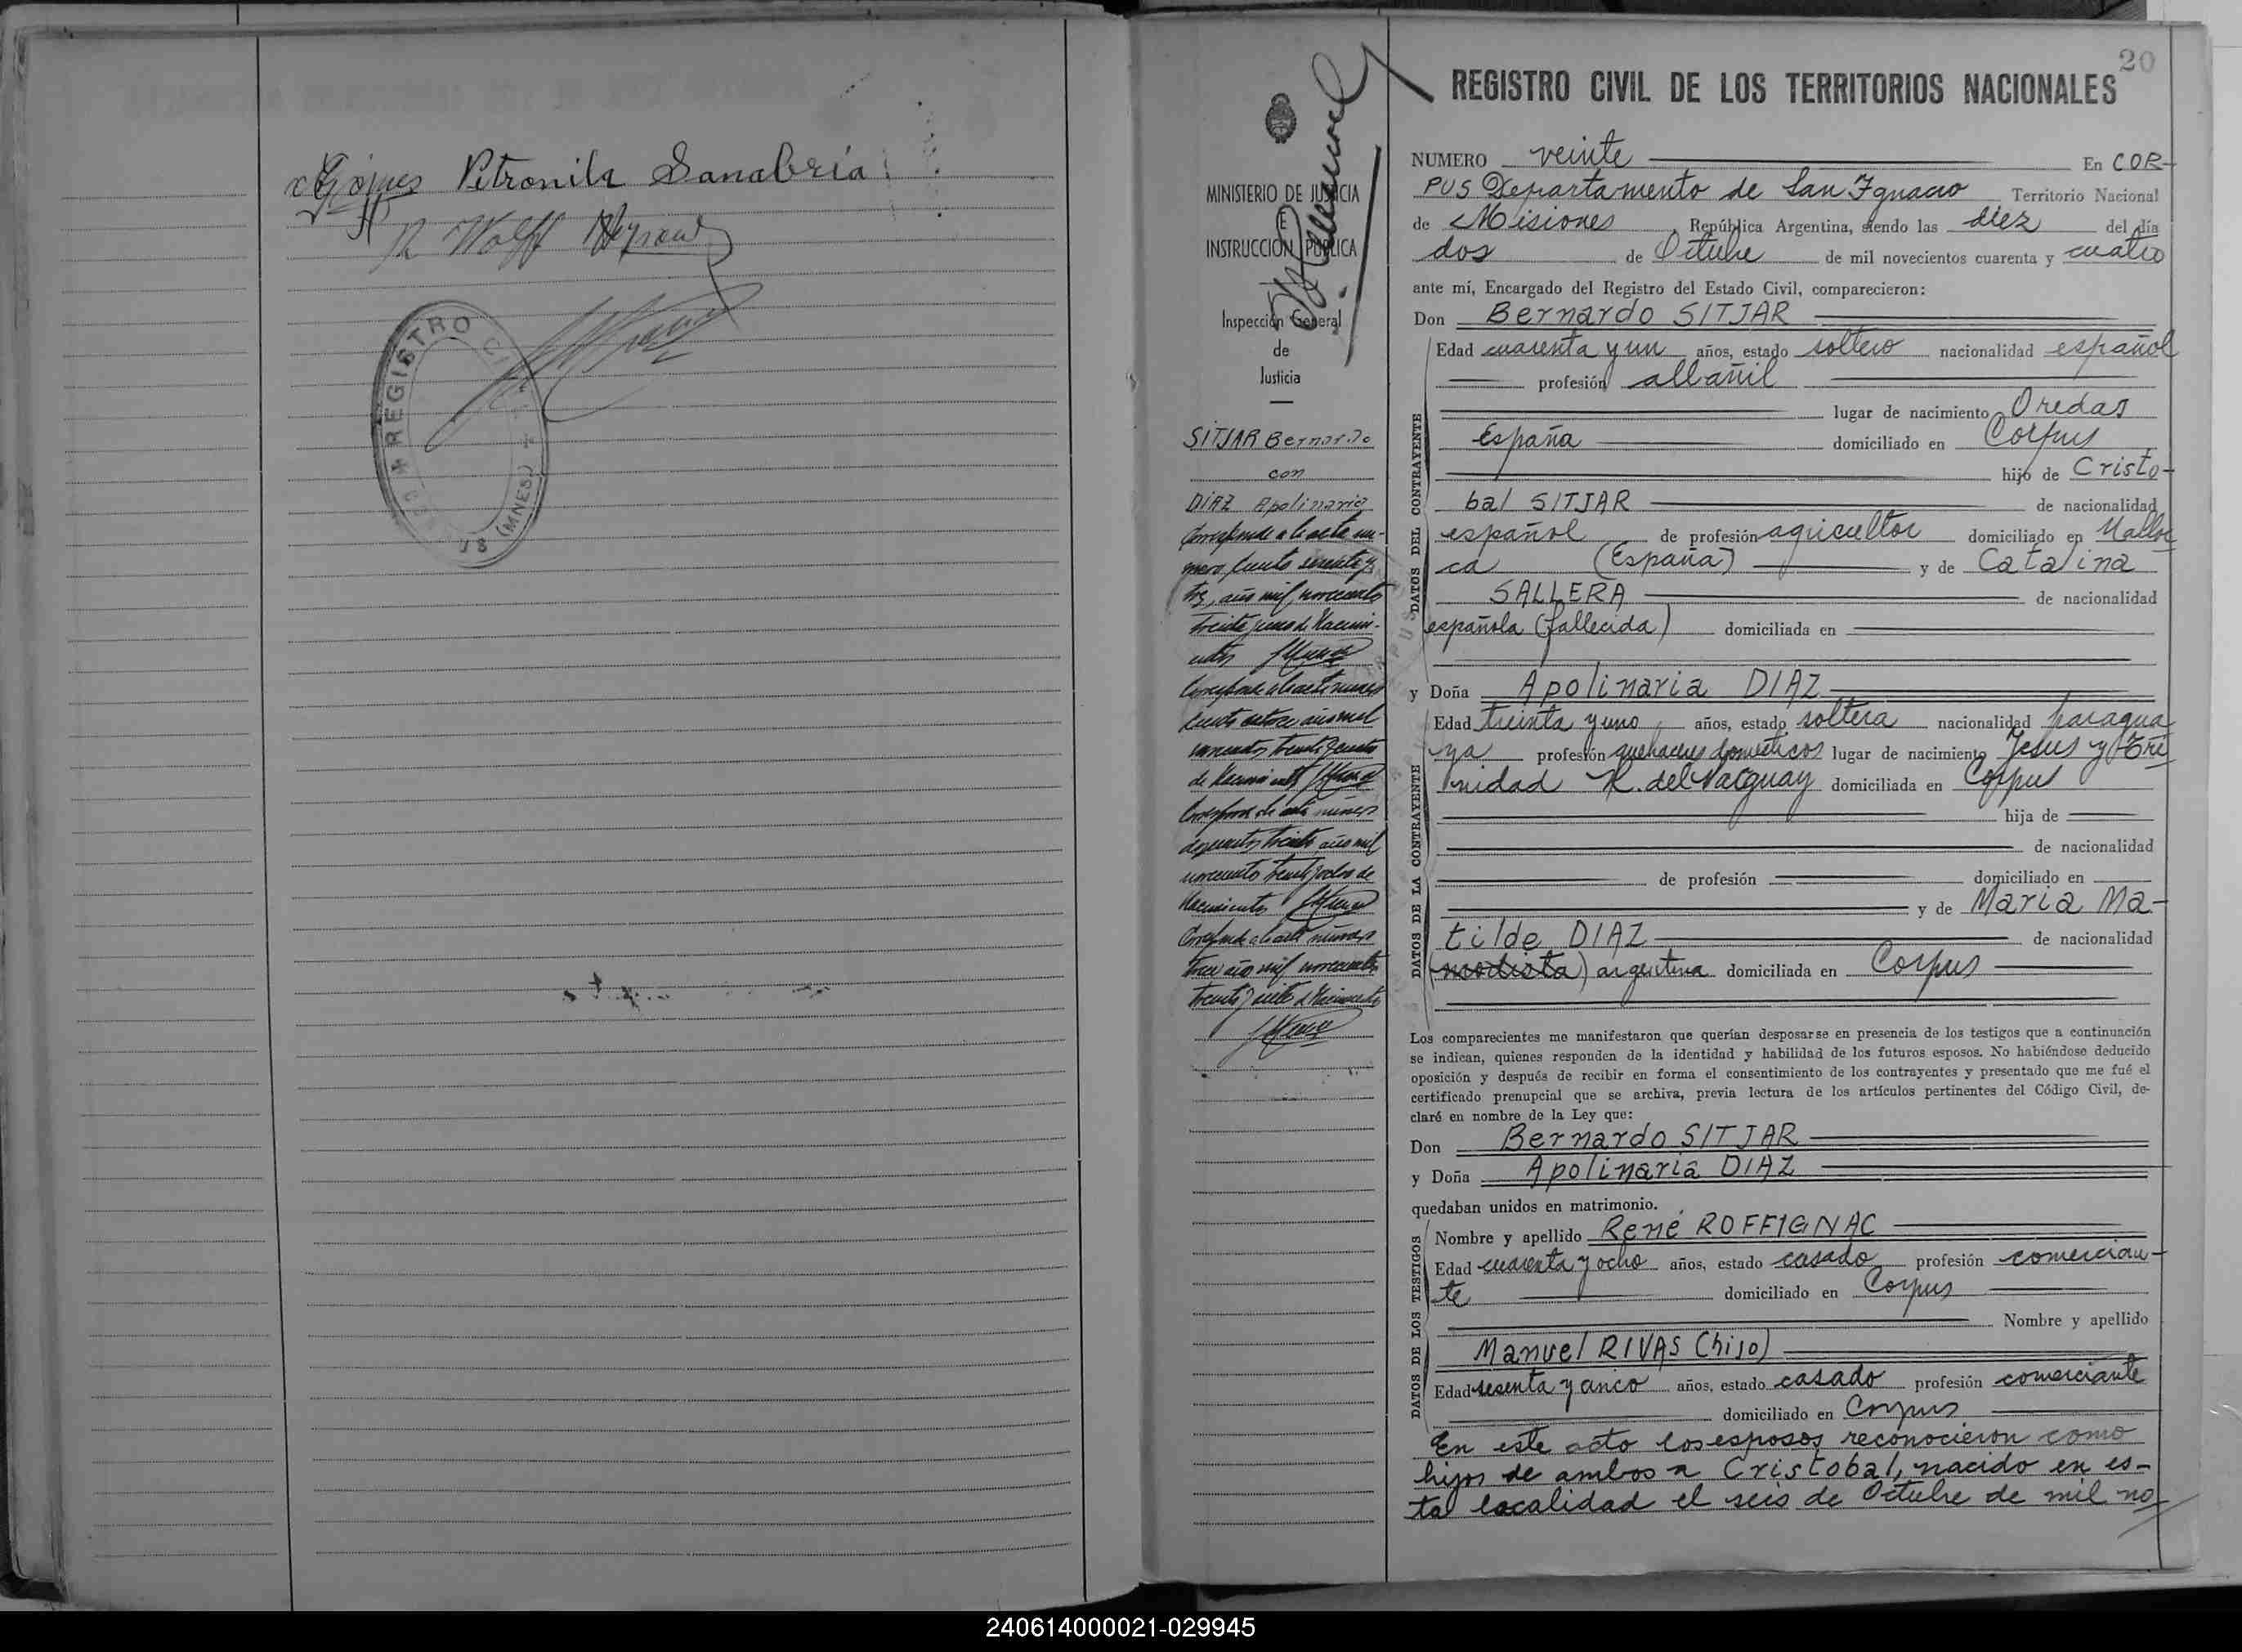 Petronila Sanabria
R Wolff
REGISTRO CI
(MNES)
20
REGISTRO CIVIL DE LOS TERRITORIOS NACIONALES
MINISTERIO DE JUSTICIA
E
INSTRUCCIÓN PÚBLICA
Inspección General
de
Justicia
SITJAR Bernardo
con
DIAZ Apolinaria
Corresponde a la acta nu-
mero ciento
tres, año mil novecientos
treinta y uno de Nacimi-
entos
Corresponde a la acta numero
ciento catorce año mil
novecientos treinta y cuatro
de Nacimientos
Corresponde acta número
doscientos treinta, año mil
novecientos treinta y ocho de
Nacimientos
Corresponde a la acta número
trece año mil novecientos
treinta y siete de Nacimientos
NUMERO veinte En COR-
PUS Departamento de San Ignacio Territorio Nacional
de Misiones, República Argentina, siendo las diez del día
dos de Octubre de mil novecientos cuarenta y cuatro
ante mí, Encargado del Registro del Estado Civil, comparecieron:
Don Bernardo SITJAR
DATOS DEL CONTRAYENTE
Edad cuarenta y un años, estado soltero nacionalidad español
profesión albañil
lugar de nacimiento Oredas
España domiciliado en Corpus
hijo de Cristo-
bal SITJAR de nacionalidad
español de profesión agricultor domiciliado en Mallor
ca (España) y de Catalina
SALLERA de nacionalidad
española (fallecida) domiciliada en
y Doña Apolinaria DIAZ
DATOS DE LA CONTRAYENTE
Edad treinta y uno, años, estado soltera nacionalidad paragua
ya profesión quehaceres domésticos lugar de nacimiento Jesus y Tri
nidad R. del Paraguay domiciliada en Corpus
hija de
de nacionalidad
de profesión domiciliado en
y de Maria Ma-
tilde DIAZ de nacionalidad
(modista) argentina domiciliada en Corpus
Los comparecientes me manifestaron que querían desposarse en presencia de los testigos que a continuación
se indican, quienes responden de la identidad y habilidad de los futuros esposos. No habiéndose deducido
oposición y después de recibir en forma el consentimiento de los contrayentes y presentado que me fué el
certificado prenupcial que se archiva, previa lectura de los artículos pertinentes del Código Civil, de-
claré en nombre de la Ley que:
Don Bernardo SITJAR
y Doña Apolinaria DIAZ
quedaban unidos en matrimonio.
DATOS DE LOS TESTIGOS
Nombre y apellido René ROFFIGNAC
Edad cuarenta y ocho años, estado casado profesión comercian-
te domiciliado en Corpus
Nombre y apellido
Manuel RIVAS (hijo)
Edad sesenta y cinco años, estado casado profesión comerciante
domiciliado en Corpus
En este acto los esposos reconocieron como
hijos de ambos a Cristobal, nacido en es-
ta localidad el seis de Octubre de mil no
240614000021-029945